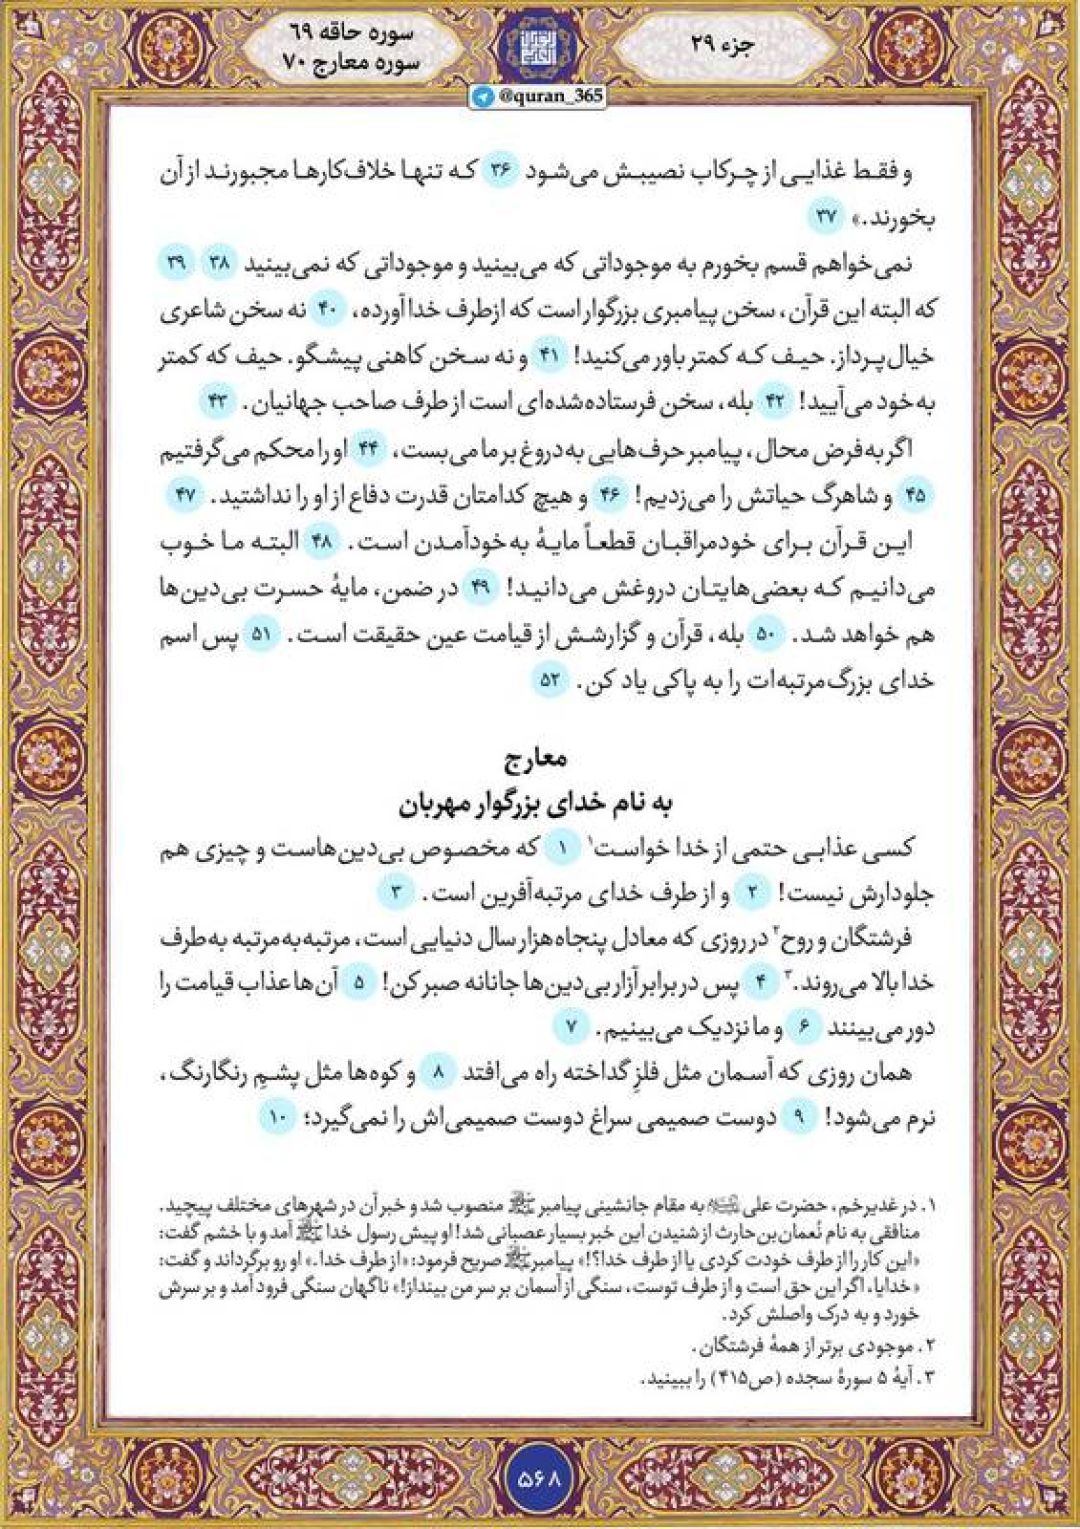 جزء ۲۹
سوره حاقه ۶۹
سوره معارج ۷۰
@quran_365
و فقط غذایی از چرکاب نصیبش می‌شود ۳۶ که تنها خلاف‌کارها مجبورند از آن
بخورند.» ۳۷
نمی‌خواهم قسم بخورم به موجوداتی که می‌بینید و موجوداتی که نمی‌بینید ۳۸ ۳۹
که البته این قرآن، سخن پیامبری بزرگوار است که ازطرف خدا آورده، ۴۰ نه سخن شاعری
خیال‌پرداز. حیف که کمتر باور می‌کنید! ۴۱ و نه سخن کاهنی پیشگو. حیف که کمتر
به خود می‌آیید! ۴۲ بله، سخن فرستاده‌شده‌ای است از طرف صاحب جهانیان. ۴۳
اگر به‌فرض محال، پیامبر حرف‌هایی به‌دروغ بر ما می‌بست، ۴۴ او را محکم می‌گرفتیم
۴۵ و شاهرگ حیاتش را می‌زدیم! ۴۶ و هیچ کدامتان قدرت دفاع از او را نداشتید. ۴۷
این قرآن برای خودمراقبان قطعاً مایۀ به‌خودآمدن است. ۴۸ البته ما خوب
می‌دانیم که بعضی‌هایتان دروغش می‌دانید! ۴۹ در ضمن، مایۀ حسرت بی‌دین‌ها
هم خواهد شد. ۵۰ بله، قرآن و گزارشش از قیامت عین حقیقت است. ۵۱ پس اسم
خدای بزرگ‌مرتبه‌ات را به پاکی یاد کن. ۵۲
معارج
به نام خدای بزرگوار مهربان
کسی عذابی حتمی از خدا خواست۱ ۱ که مخصوص بی‌دین‌هاست و چیزی هم
جلودارش نیست! ۲ و از طرف خدای مرتبه‌آفرین است. ۳
فرشتگان و روح۲ در روزی که معادل پنجاه‌هزار سال دنیایی است، مرتبه‌به‌مرتبه به‌طرف
خدا بالا می‌روند.۳ ۴ پس در برابر آزار بی‌دین‌ها جانانه صبر کن! ۵ آن‌ها عذاب قیامت را
دور می‌بینند ۶ و ما نزدیک می‌بینیم. ۷
همان روزی که آسمان مثل فلزِ گداخته راه می‌افتد ۸ و کوه‌ها مثل پشمِ رنگارنگ،
نرم می‌شود! ۹ دوست صمیمی سراغ دوست صمیمی‌اش را نمی‌گیرد؛ ۱۰
۱. در غدیرخم، حضرت علی به مقام جانشینی پیامبر ﷺ منصوب شد و خبر آن در شهرهای مختلف پیچید.
منافقی به نام نُعمان‌بن‌حارث از شنیدن این خبر بسیار عصبانی شد! او پیش رسول خدا ﷺ آمد و با خشم گفت:
«این کار را از طرف خودت کردی یا از طرف خدا؟!» پیامبر ﷺ صریح فرمود: «از طرف خدا.» او رو برگرداند و گفت:
«خدایا، اگر این حق است و از طرف توست، سنگی از آسمان بر سر من بینداز!» ناگهان سنگی فرود آمد و بر سرش
خورد و به درک واصلش کرد.
۲. موجودی برتر از همۀ فرشتگان.
۳. آیۀ ۵ سورۀ سجده (ص۴۱۵) را ببینید.
۵۶۸